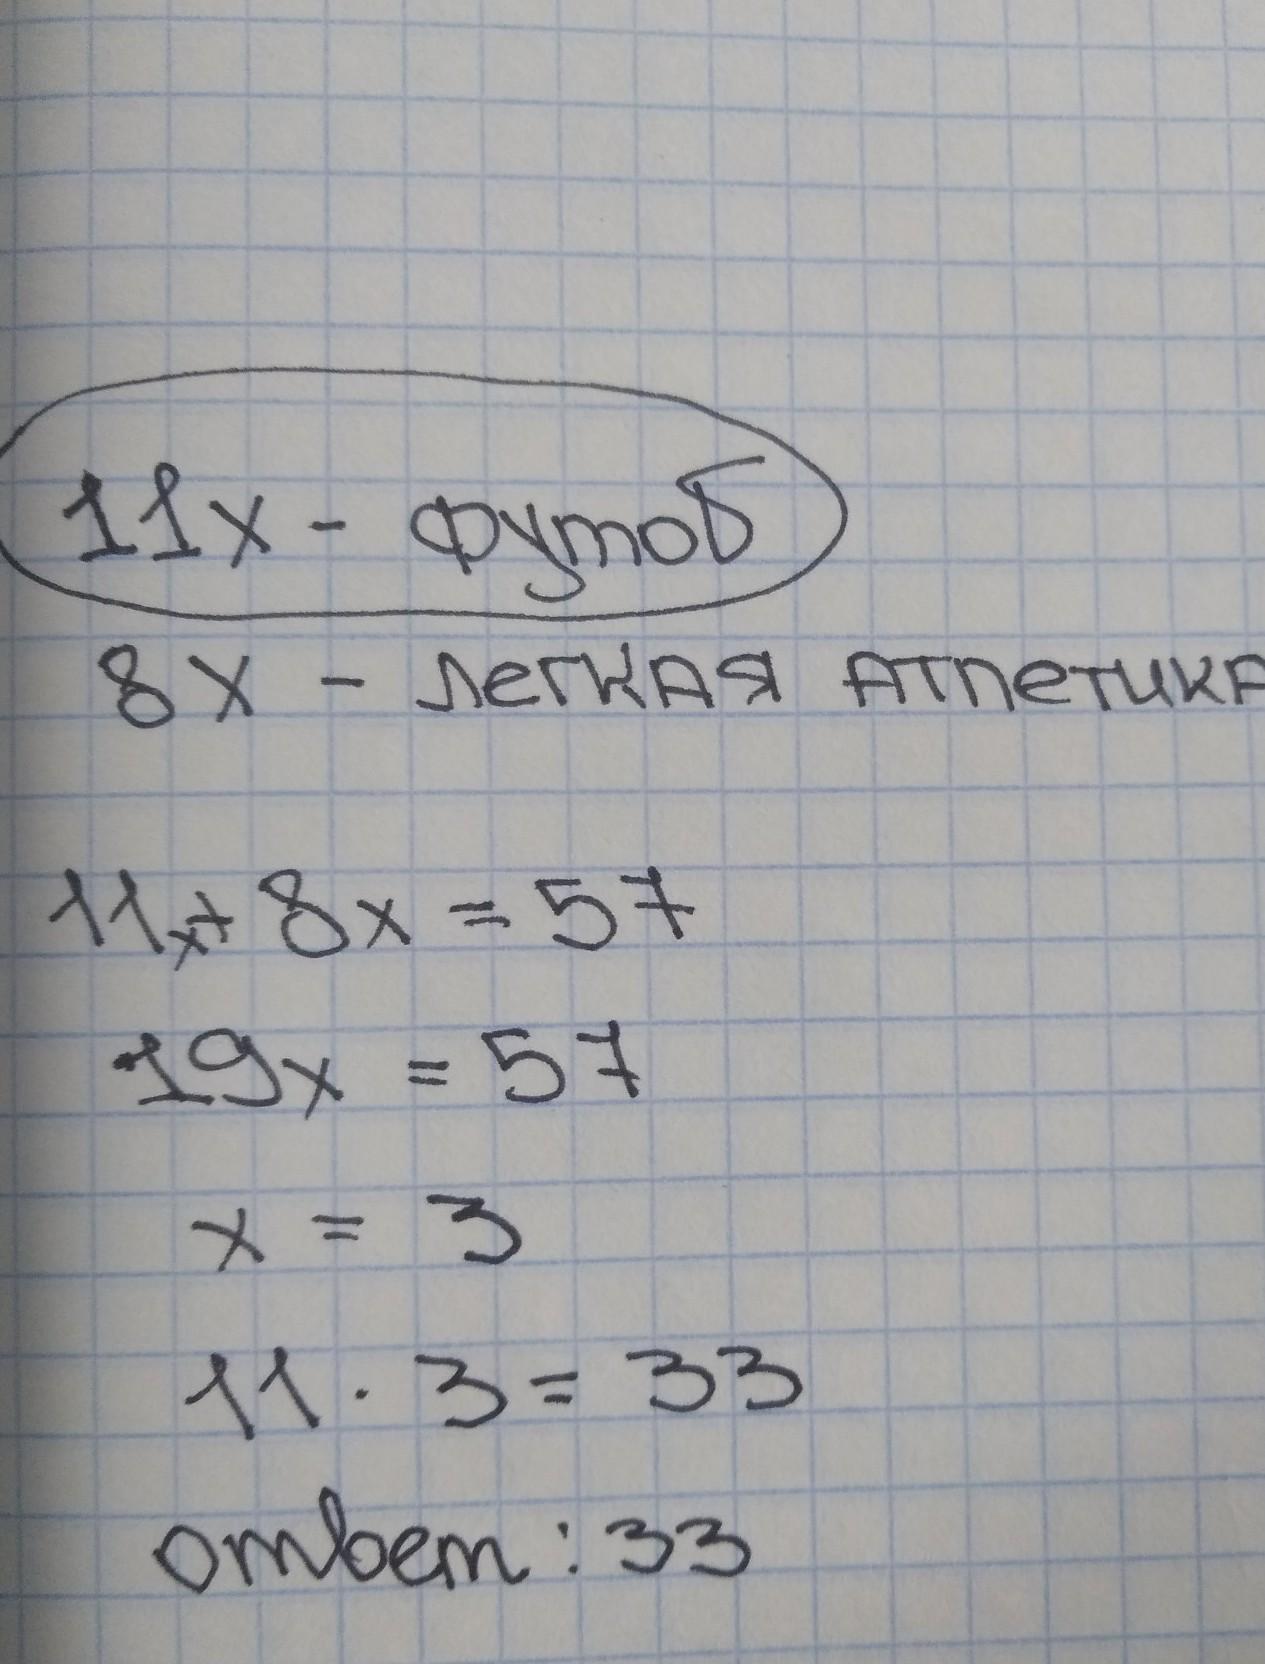 11x - футоб
8x - легкая атлетика
11x + 8x = 57
19x = 57
x = 3
11 · 3 = 33
ответ: 33